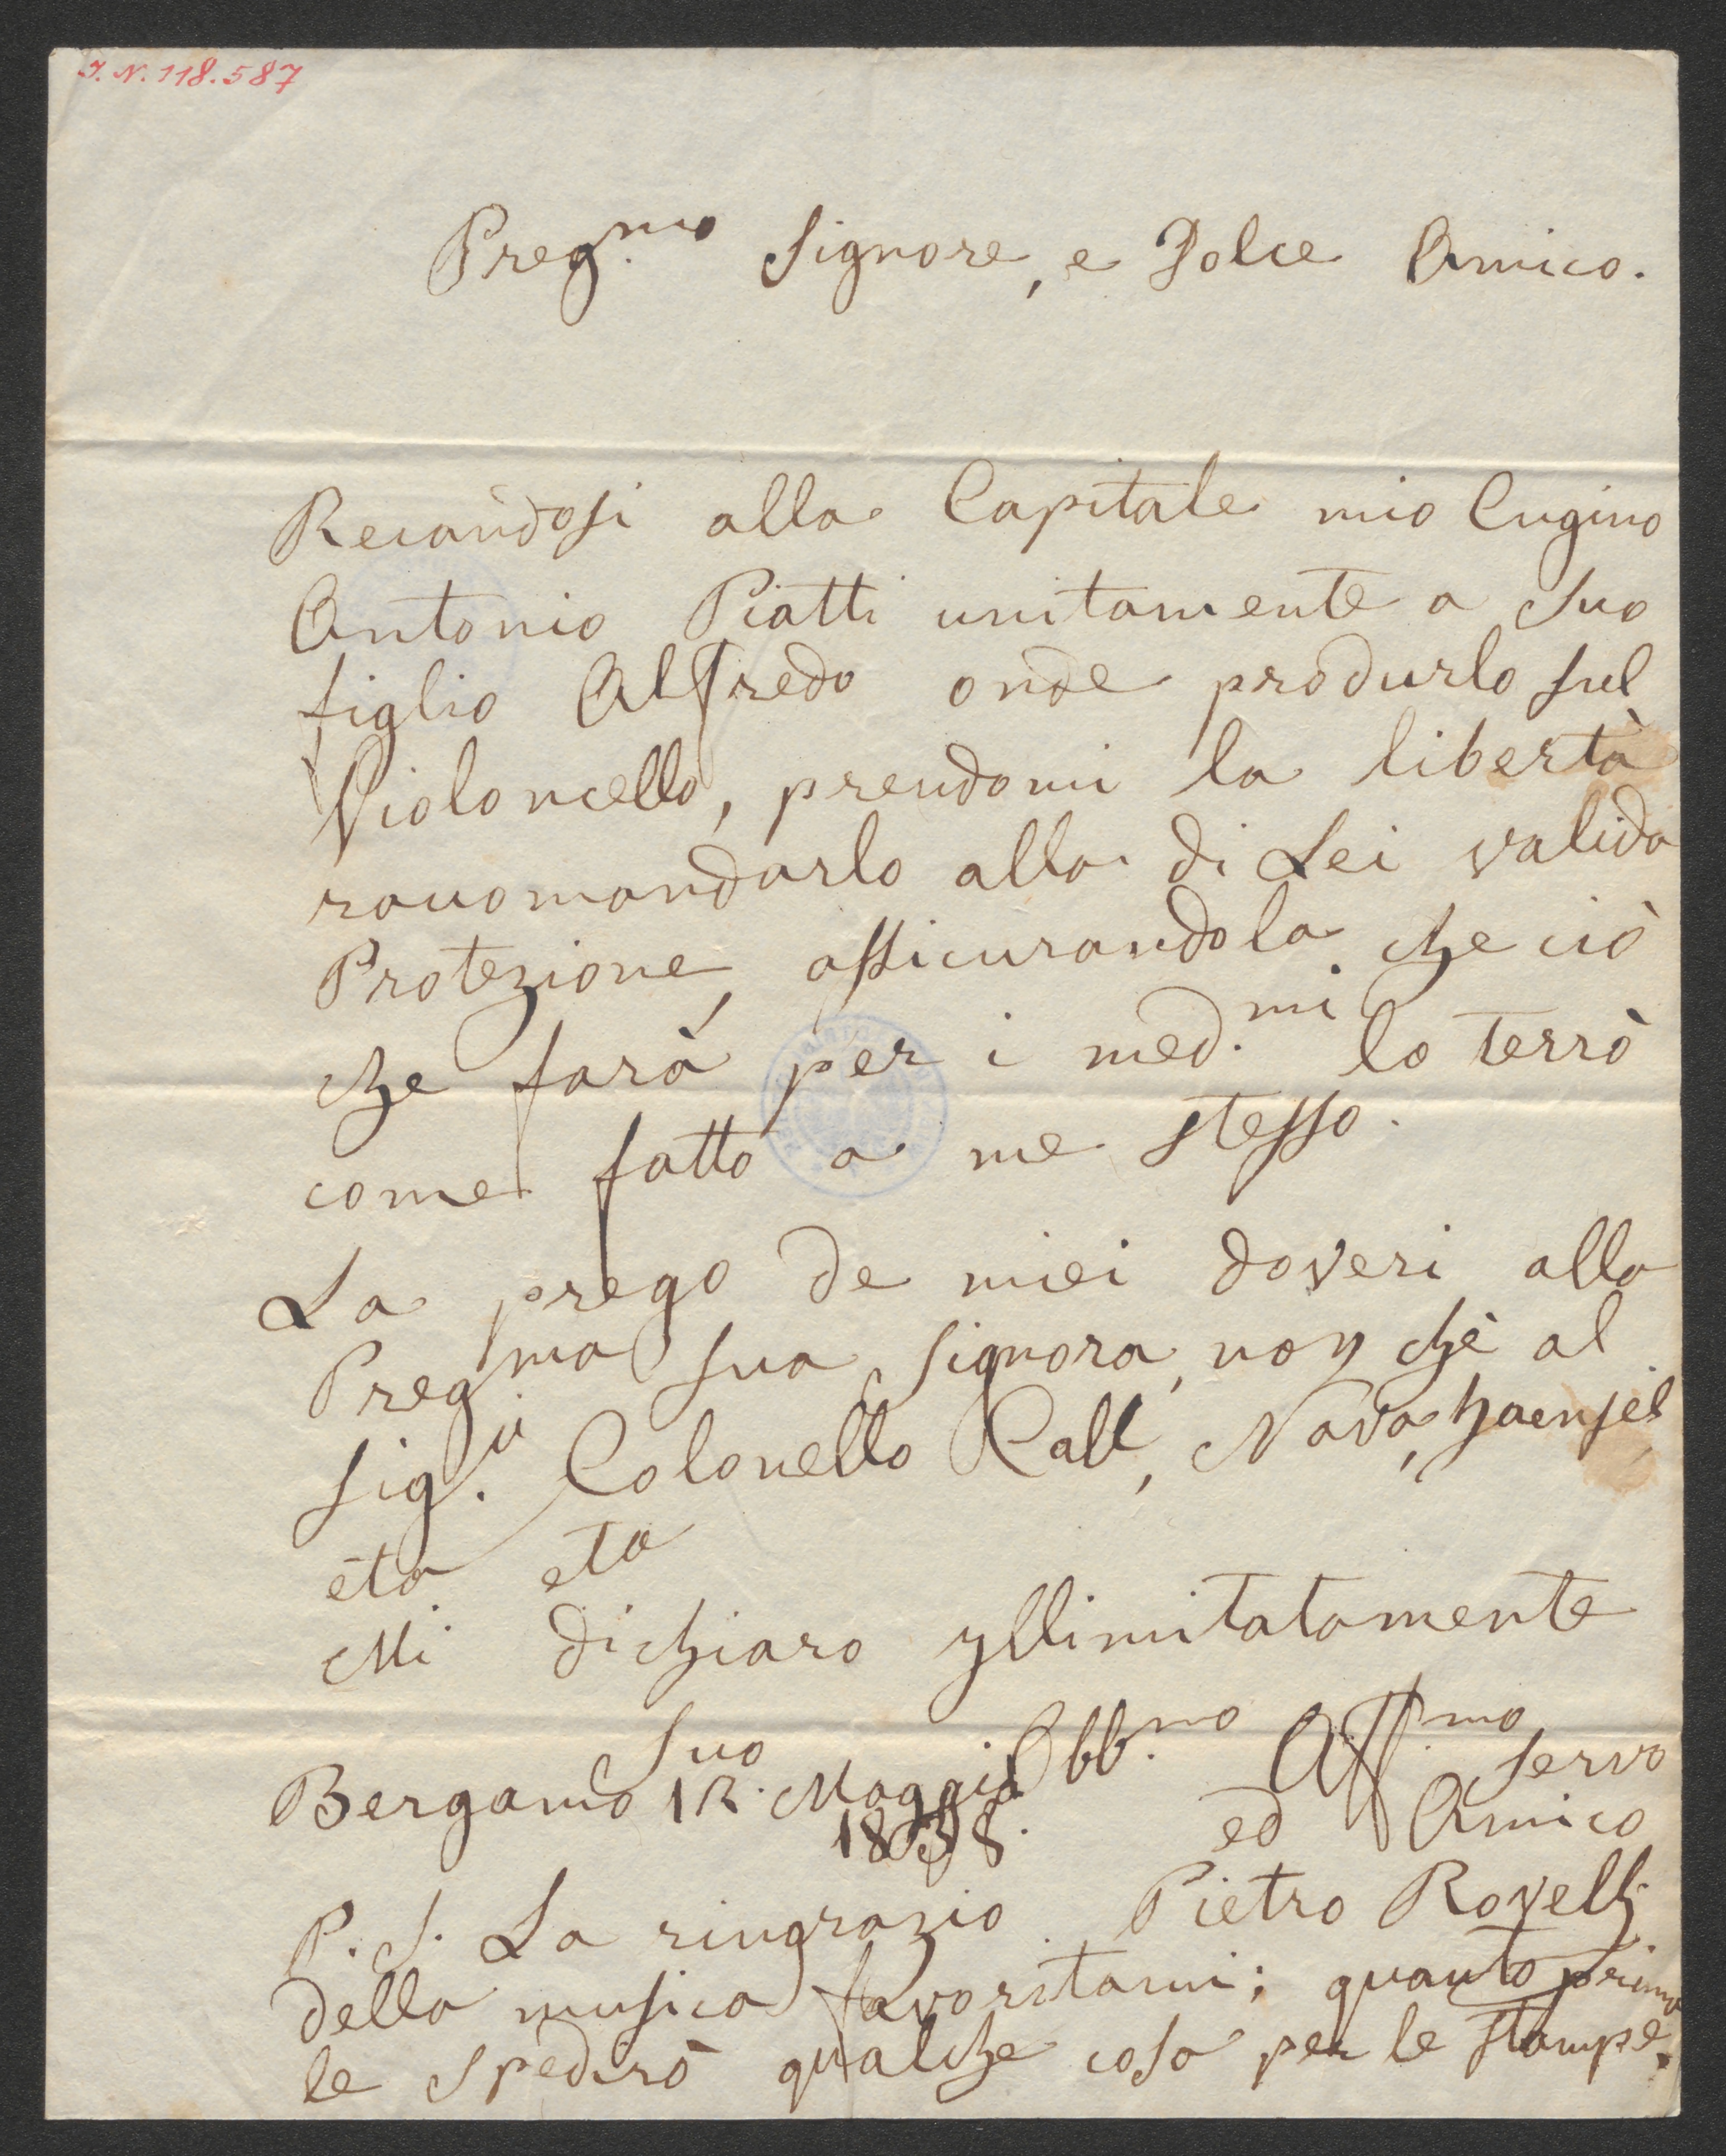 I. N. 118.587
Preg.mo Signore, e Dolce Amico.
Recandosi alla Capitale mio Cugino
Antonio Piatti unitamente a Suo
figlio Alfredo onde produrlo sul
Violoncello, prendomi la libertà
raccomandarlo alla di Lei valida
Protezione, assicurandola che ciò
che farà per i med.mi lo terrò
come fatto a me stesso.
La prego de miei doveri alla
Preg.ma sua Signora, non chè al
Sig.ri Colonello Call, Nava, Haensel
etc etc
Mi dichiaro yllimitatamente
Suo Obb.mo Aff.mo Servo
Bergamo 12. Maggio
1838.
ed Amico
Pietro Rovelli
P. S. La ringrazio
della musica favoritami; quanto prima
le spedirò qualche cosa per le stampe.